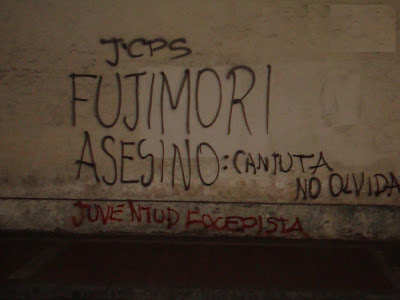 J.CPS
FUJIMORI
ASESINO: CANTUTA
NO OLVIDA
JUVENTUD FOCEPISTA